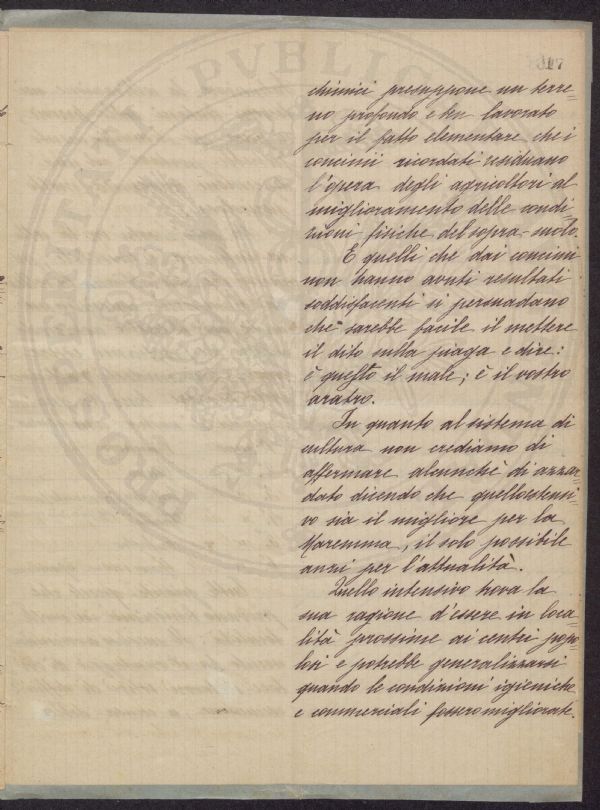 PVBLIC
317
chimici presuppone un terre=
no profondo e ben lavorato
per il fatto elementare che i
concimi ricordati residuano
l'opera degli agricoltori al
miglioramento delle condi=
zioni fisiche del sopra-suolo.
E quelli che dai concimi
non hanno avuti resultati
soddisfacenti si persuadano
che sarebbe facile il mettere
il dito sulla piaga e dire:
è questo il male; è il vostro
aratro.
In quanto al sistema di
cultura non crediamo di
affermare alcunchè di azzar=
dato dicendo che quello estensi=
vo sia il migliore per la
Maremma, il solo possibile
anzi per l'attualità.
Quello intensivo trova la
sua ragione d'essere in loca=
lità prossime ai centri popo=
losi e potrebbe generalizzarsi
quando le condizioni igieniche
e commerciali fossero migliorate.